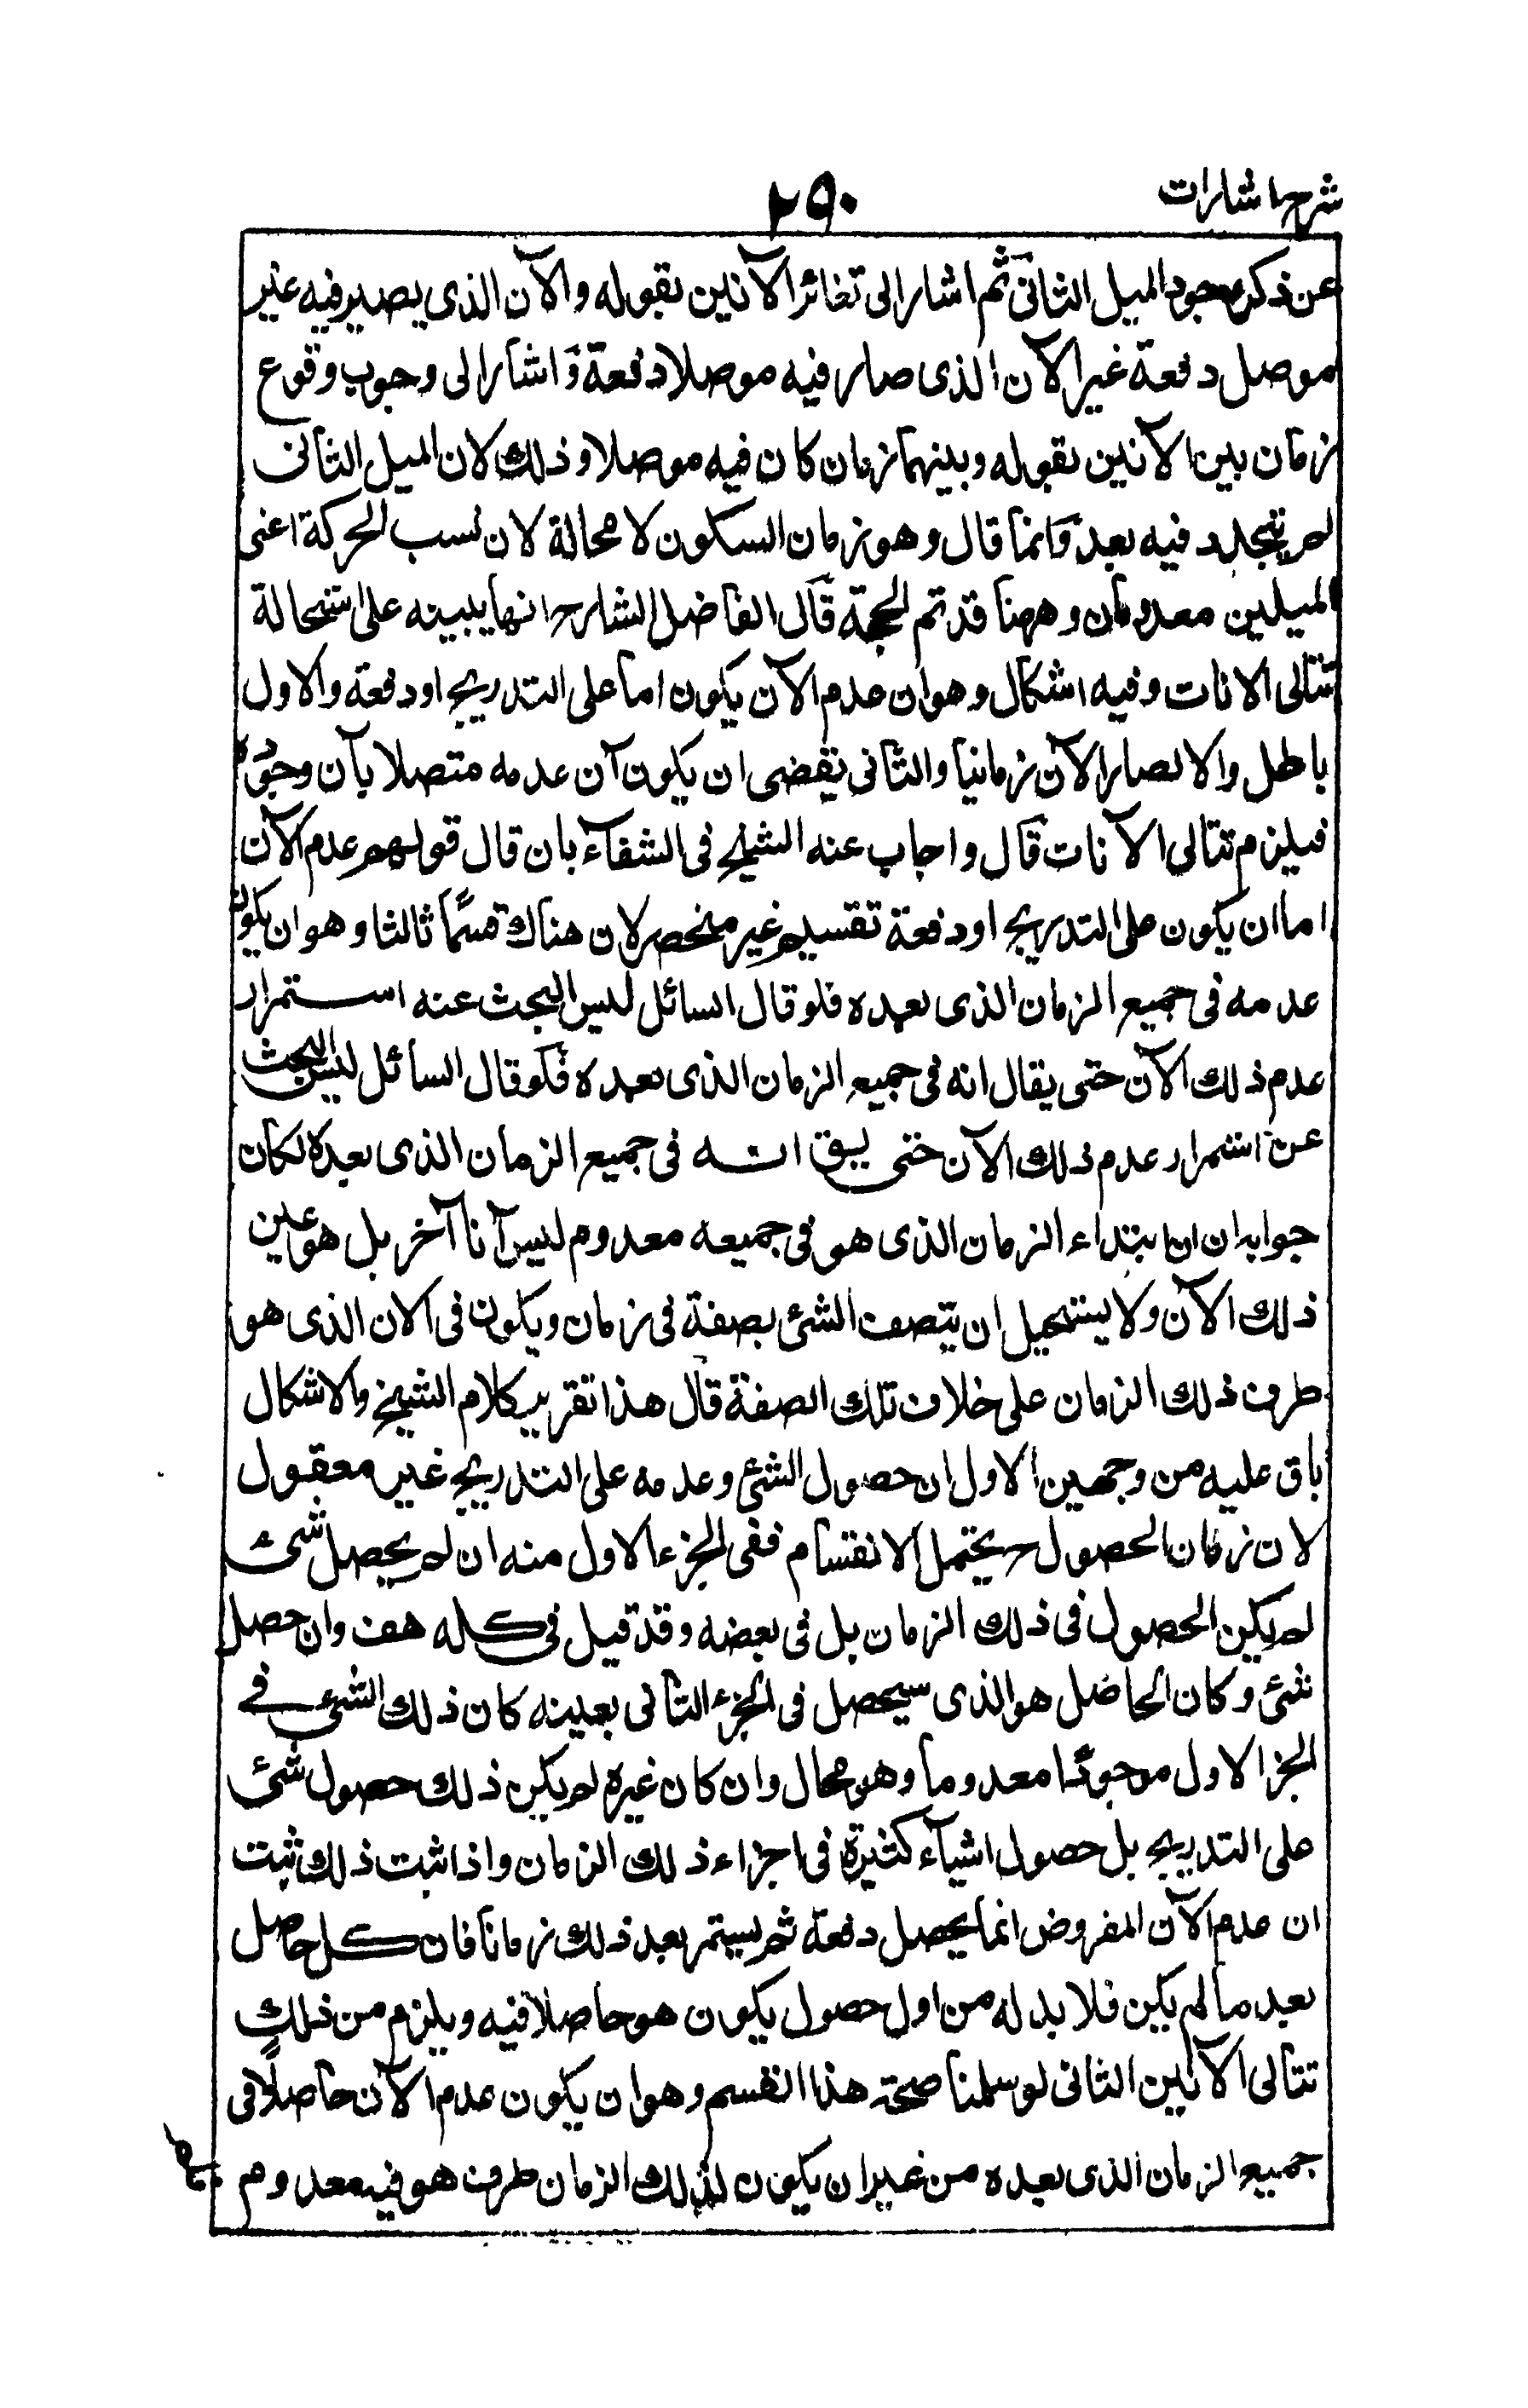 شرح اشارات
۲۹۰
عن ذكر وجود الميل الثانى ثم اشار الى تغائر الآنين بقوله والآن الذى يصير فيه غير
موصل دفعة غير الآن الذى صار فيه موصلا دفعة و اشار الى وجوب وقوع
زمان بين الآنين بقوله وبينهما زمان كان فيه موصلا وذلك لان الميل الثانى
لم يتجدد فيه بعد وانما قال وهو زمان السكون لا محالة لان لسبب الحركة اعنى
الميلين معدومان وههنا قد تم الحجة قال الفاضل الشارح انها يبينه على استحالة
تتالى الانات وفيه اشكال وهو ان عدم الآن يكون اما على التدريج او دفعة والاول
باطل والا لصار الآن زمانيا والثانى يقضى ان يكون آن عدمه متصلا بآن وجوده
فيلزم تتالى الآنات قال واجاب عنه الشيخ فى الشفاء بان قال قولهم عدم الآن
اما ان يكون على التدريج او دفعة تقسيم غير منحصر لان هناك قسما ثالثا وهو ان يكون
عدمه فى جميع الزمان الذى بعده فلو قال السائل ليس البحث عنه استمرار
عدم ذلك الآن حتى يقال انه فى جميع الزمان الذى بعده فلو قال السائل ليس البحث
عن استمرار عدم ذلك الآن حتى يبق انه فى جميع الزمان الذى بعده لكان
جوابه ان ابتداء الزمان الذى هو فى جميعه معدوم ليس آنا آخر بل هو عين
ذلك الآن ولا يستحيل ان يتصف الشئ بصفة فى زمان ويكون فى الان الذى هو
طرف ذلك الزمان على خلاف تلك الصفة قال هذا تقرير كلام الشيخ والاشكال
باق عليه من وجهين الاول ان حصول الشئ وعدمه على التدريج غير معقول
لان زمان الحصول ح يحتمل الانقسام ففى الجزء الاول منه ان لم يحصل شئ
لم يكن الحصول فى ذلك الزمان بل فى بعضه وقد قيل فى كله هف وان حصل
شئ وكان الحاصل هو الذى سيحصل فى الجزء الثانى بعينه كان ذلك الشئ فى
الجزا الاول موجودا معدوما وهو محال وان كان غيره لم يكن ذلك حصول شئ
على التدريج بل حصول اشياء كثيرة فى اجزاء ذلك الزمان واذا ثبت ذلك ثبت
ان عدم الآن المفروض انما يحصل دفعة ثم يستمر بعد ذلك زمانا فان كل حاصل
بعد ما لم يكن فلا بد له من اول حصول يكون هو حاصلا فيه ويلزم من ذلك
تتالى الآنين الثانى لو سلمنا صحة هذا القسم وهو ان يكون عدم الآن حاصلا فى
جميع الزمان الذى بعده من غير ان يكون لذلك الزمان طرف هو فيه معدوم